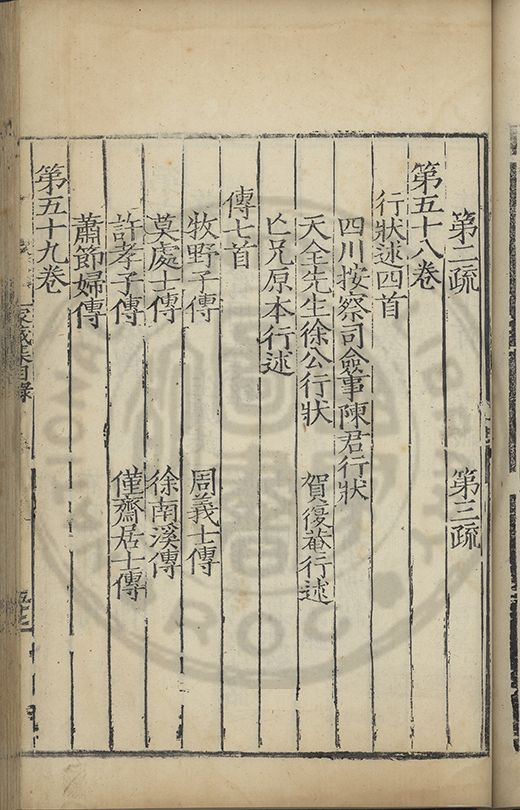 第二疏　第三疏
第五十八卷
行狀述四首
四川按察司僉事陳君行狀
天全先生徐公行狀　賀復菴行述
亡兄原本行述
傳七首
牧野子傳　周義士傳
莫處士傳　徐南溪傳
許孝子傳　僅齋居士傳
蕭節婦傳
第五十九卷
集目錄